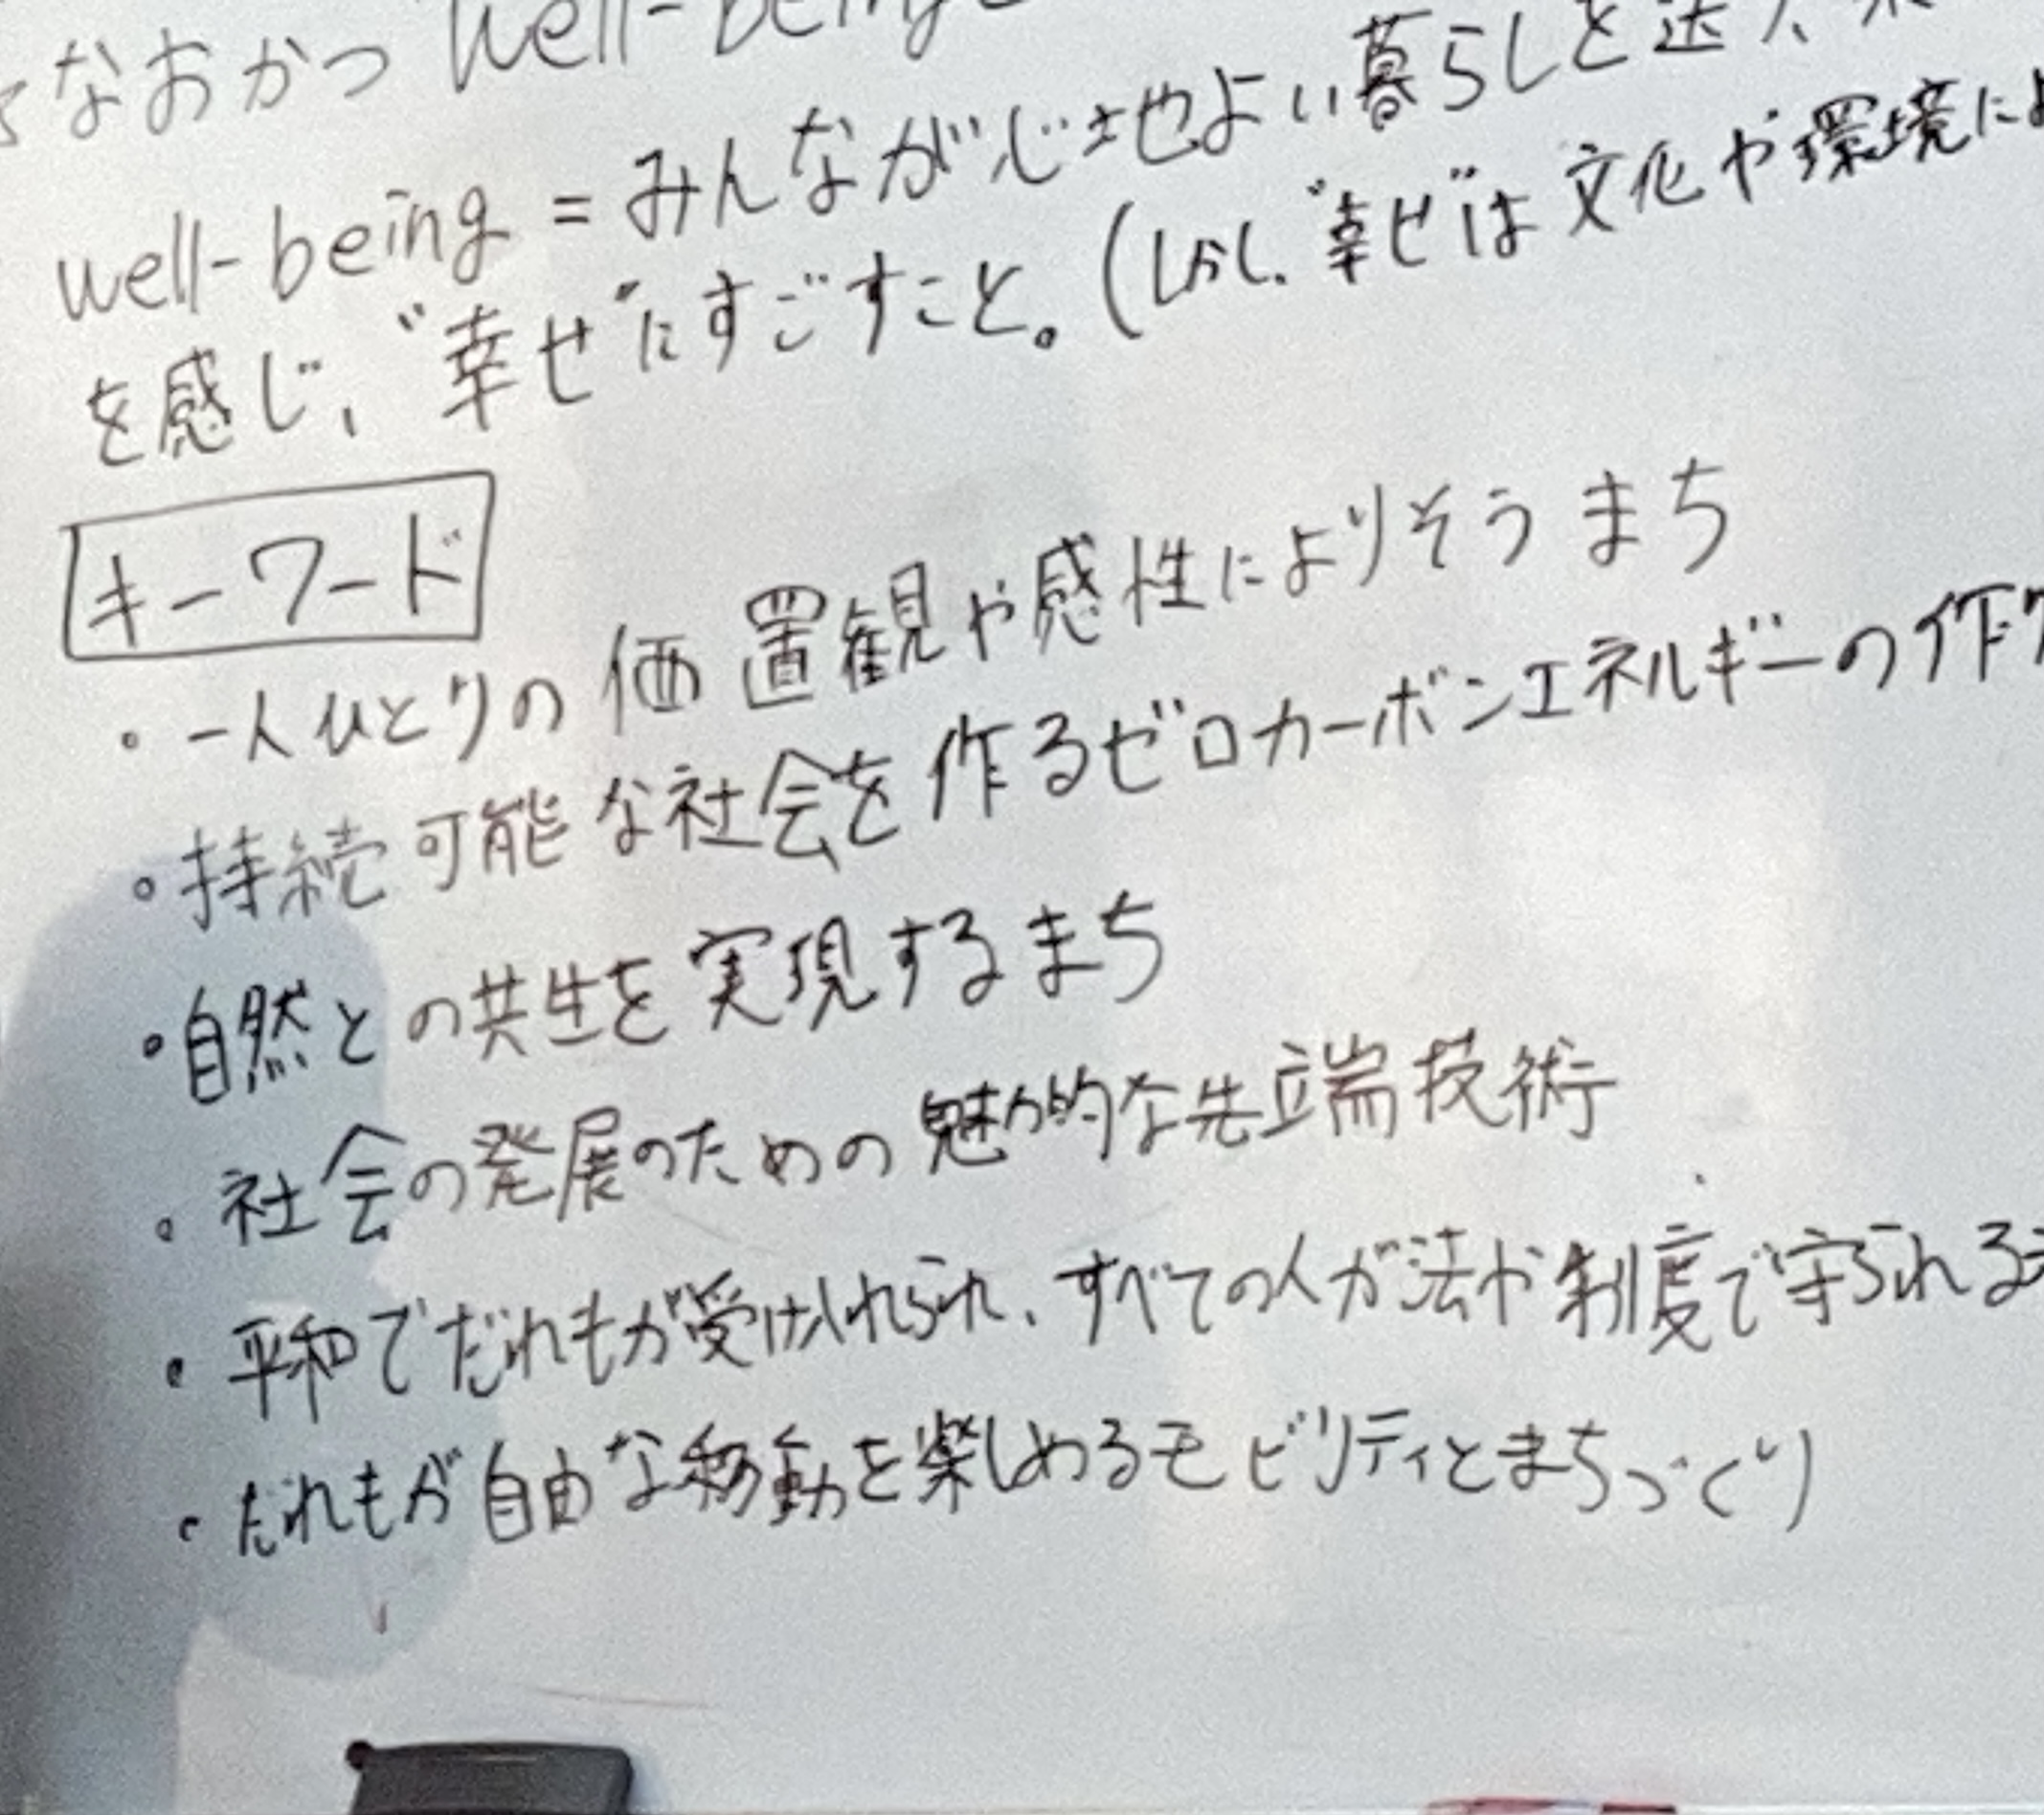 なおかつ well-being
well-being = みんなが心地よい暮らしを送
を感じ、"幸せ"にすごすこと。(しかし、"幸せ"は文化や環境によ
キーワード
・一人ひとりの価置観や感性によりそうまち
・持続可能な社会を作るゼロカーボンエネルギーの作
・自然との共生を実現するまち
・社会の発展のための魅力的な先端技術
・平和でだれもが受け入れられ、すべての人が法や制度で守られる
・だれもが自由な移動を楽しめるモビリティとまちづくり